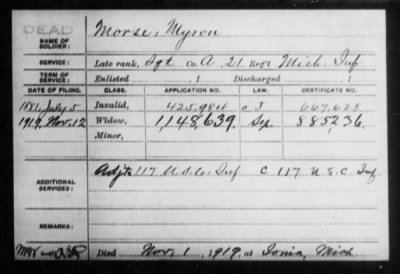 DEAD
NAME OF SOLDIER: Morse, Myron
SERVICE: Late rank, Sgt Co. A, 21 Reg't Mich. Inf
TERM OF SERVICE: Enlisted , 1 Discharged , 1
DATE OF FILING. CLASS. APPLICATION NO. LAW. CERTIFICATE NO.
1881, July 5 Invalid, 425.984 667.628
1919, Nov. 12 Widow, 1,148,639. Sep. 885236.
Minor,
ADDITIONAL SERVICES: Adjt 117 U.S.C. Inf C 117 U.S.C. Inf.
REMARKS:
Died Nov. 1, 1919, at Ionia, Mich